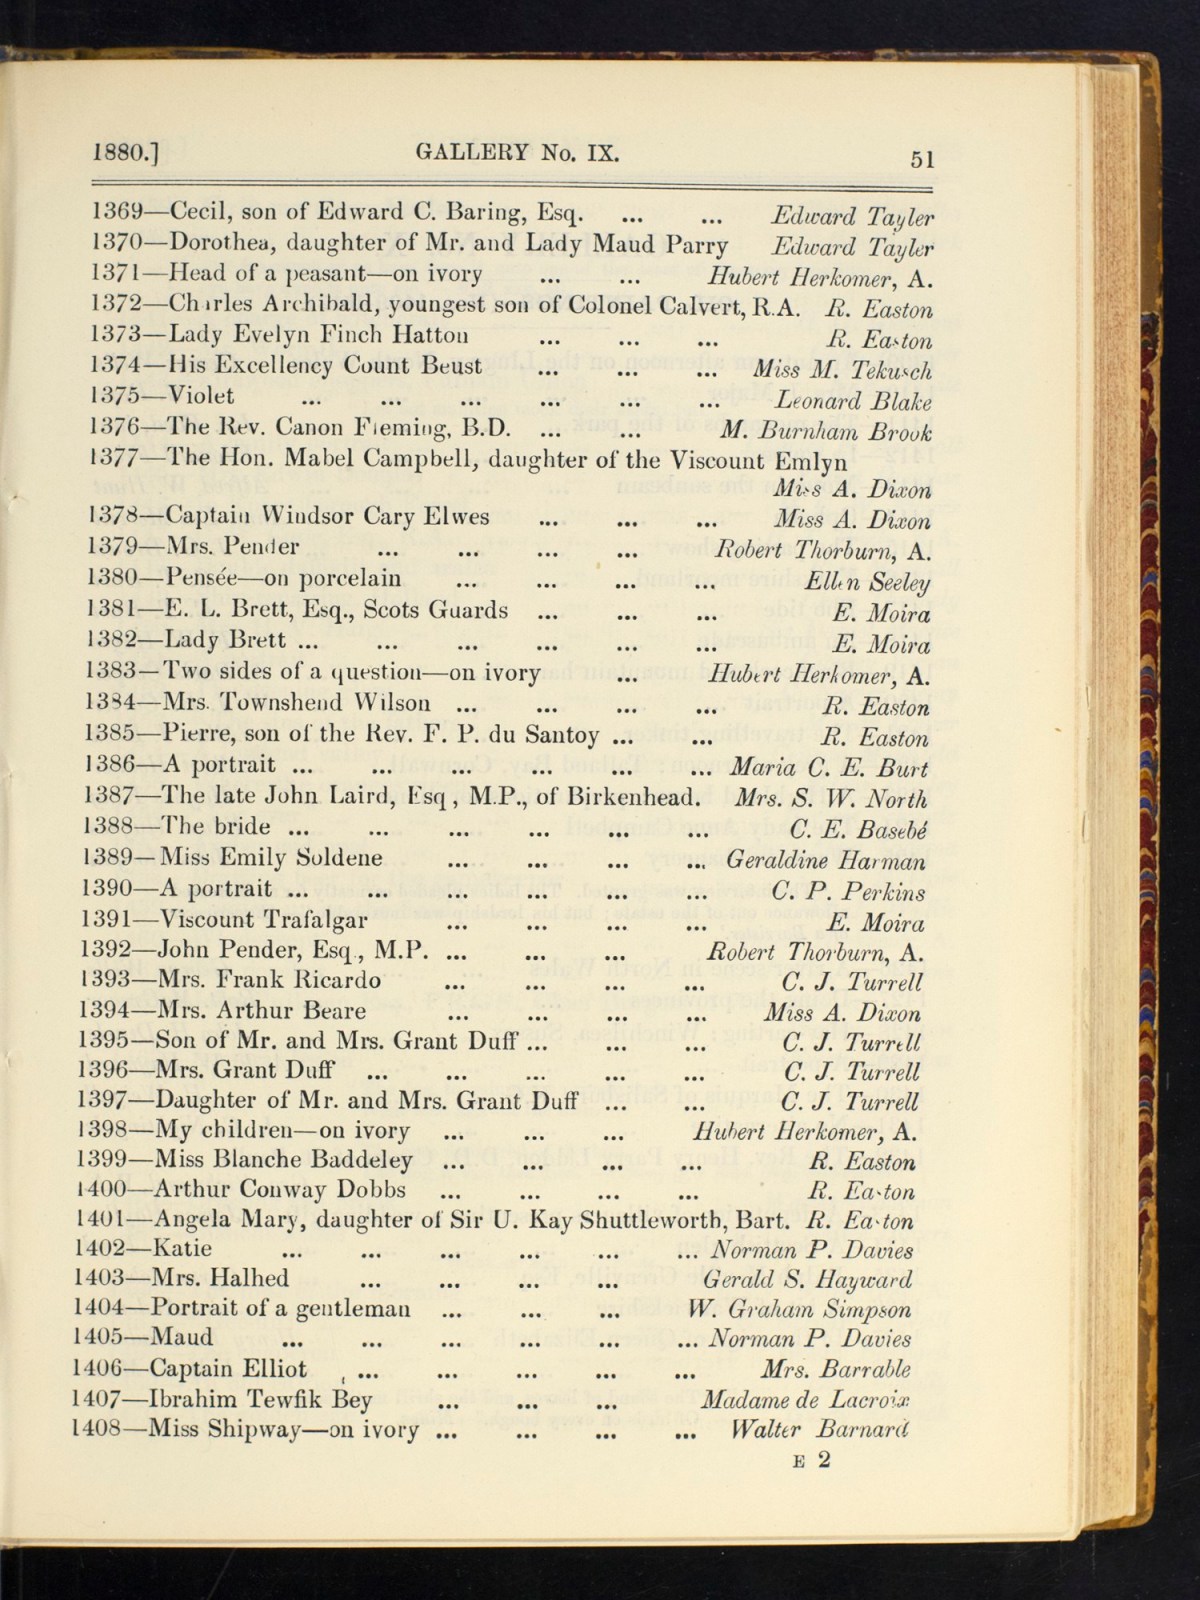 1880.] GALLERY No. IX. 51
1369—Cecil, son of Edward C. Baring, Esq. ... ... Edward Tayler
1370—Dorothea, daughter of Mr. and Lady Maud Parry Edward Tayler
1371—Head of a peasant—on ivory ... ... Hubert Herkomer, A.
1372—Charles Archibald, youngest son of Colonel Calvert, R.A. R. Easton
1373—Lady Evelyn Finch Hatton ... ... ... R. Easton
1374—His Excellency Count Beust ... ... ... Miss M. Tekusch
1375—Violet ... ... ... ... ... ... Leonard Blake
1376—The Rev. Canon Fleming, B.D. ... ... M. Burnham Brook
1377—The Hon. Mabel Campbell, daughter of the Viscount Emlyn
Miss A. Dixon
1378—Captain Windsor Cary Elwes ... ... ... Miss A. Dixon
1379—Mrs. Pender ... ... ... ... Robert Thorburn, A.
1380—Pensée—on porcelain ... ... ... ... Ellen Seeley
1381—E. L. Brett, Esq., Scots Guards ... ... ... E. Moira
1382—Lady Brett ... ... ... ... ... ... E. Moira
1383—Two sides of a question—on ivory ... Hubert Herkomer, A.
1384—Mrs. Townshend Wilson ... ... ... ... R. Easton
1385—Pierre, son of the Rev. F. P. du Santoy ... ... R. Easton
1386—A portrait ... ... ... ... ... ... Maria C. E. Burt
1387—The late John Laird, Esq, M.P., of Birkenhead. Mrs. S. W. North
1388—The bride ... ... ... ... ... ... C. E. Basebé
1389—Miss Emily Soldene ... ... ... ... Geraldine Harman
1390—A portrait ... ... ... ... ... ... C. P. Perkins
1391—Viscount Trafalgar ... ... ... ... E. Moira
1392—John Pender, Esq., M.P. ... ... ... Robert Thorburn, A.
1393—Mrs. Frank Ricardo ... ... ... ... C. J. Turrell
1394—Mrs. Arthur Beare ... ... ... ... Miss A. Dixon
1395—Son of Mr. and Mrs. Grant Duff ... ... ... C. J. Turrell
1396—Mrs. Grant Duff ... ... ... ... ... C. J. Turrell
1397—Daughter of Mr. and Mrs. Grant Duff ... ... C. J. Turrell
1398—My children—on ivory ... ... ... Hubert Herkomer, A.
1399—Miss Blanche Baddeley ... ... ... ... R. Easton
1400—Arthur Conway Dobbs ... ... ... ... R. Easton
1401—Angela Mary, daughter of Sir U. Kay Shuttleworth, Bart. R. Easton
1402—Katie ... ... ... ... ... ... Norman P. Davies
1403—Mrs. Halhed ... ... ... ... Gerald S. Hayward
1404—Portrait of a gentleman ... ... ... W. Graham Simpson
1405—Maud ... ... ... ... ... ... Norman P. Davies
1406—Captain Elliot ... ... ... ... ... Mrs. Barrable
1407—Ibrahim Tewfik Bey ... ... ... Madame de Lacroix
1408—Miss Shipway—on ivory ... ... ... ... Walter Barnard
E 2